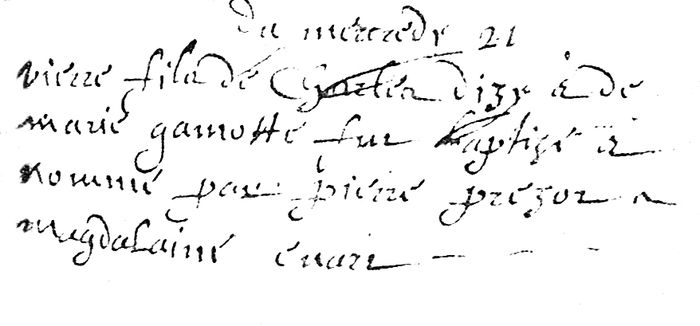 du mercredy 21
pierre fils de Charles dizy & de
marie gamotte fut baptizé &
nommé par pierre prezot &
magdalaine euart